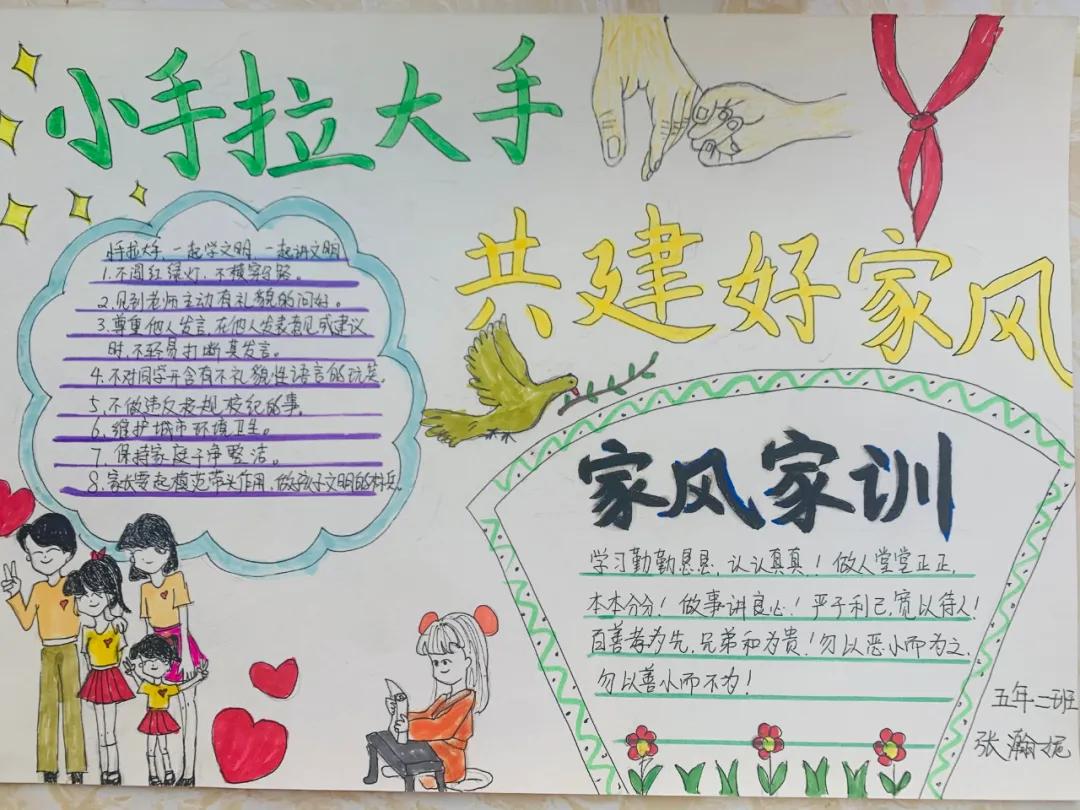 小手拉大手
共建好家风
小手拉大手,一起学文明,一起讲文明
1.不闯红绿灯,不横穿马路。
2.见到老师主动有礼貌的问好。
3.尊重他人发言,在他人发表意见或建议
时,不轻易打断其发言。
4.不对同学开含有不礼貌性语言的玩笑。
5.不做违反校规校纪的事。
6.维护城市环境卫生。
7.保持家庭干净整洁。
8.家长要起模范带头作用,做孩子文明的标兵。
家风家训
学习勤勤恳恳,认认真真!做人堂堂正正,
本本分分!做事讲良心!严于利己,宽以待人!
百善孝为先,兄弟和为贵!勿以恶小而为之,
勿以善小而不为!
五年二班
张瀚